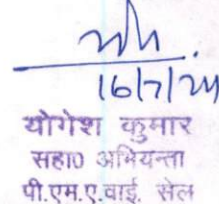 16/7/24
योगेश कुमार
सहा0 अभियन्ता
पी.एम.ए.वाई. सेल